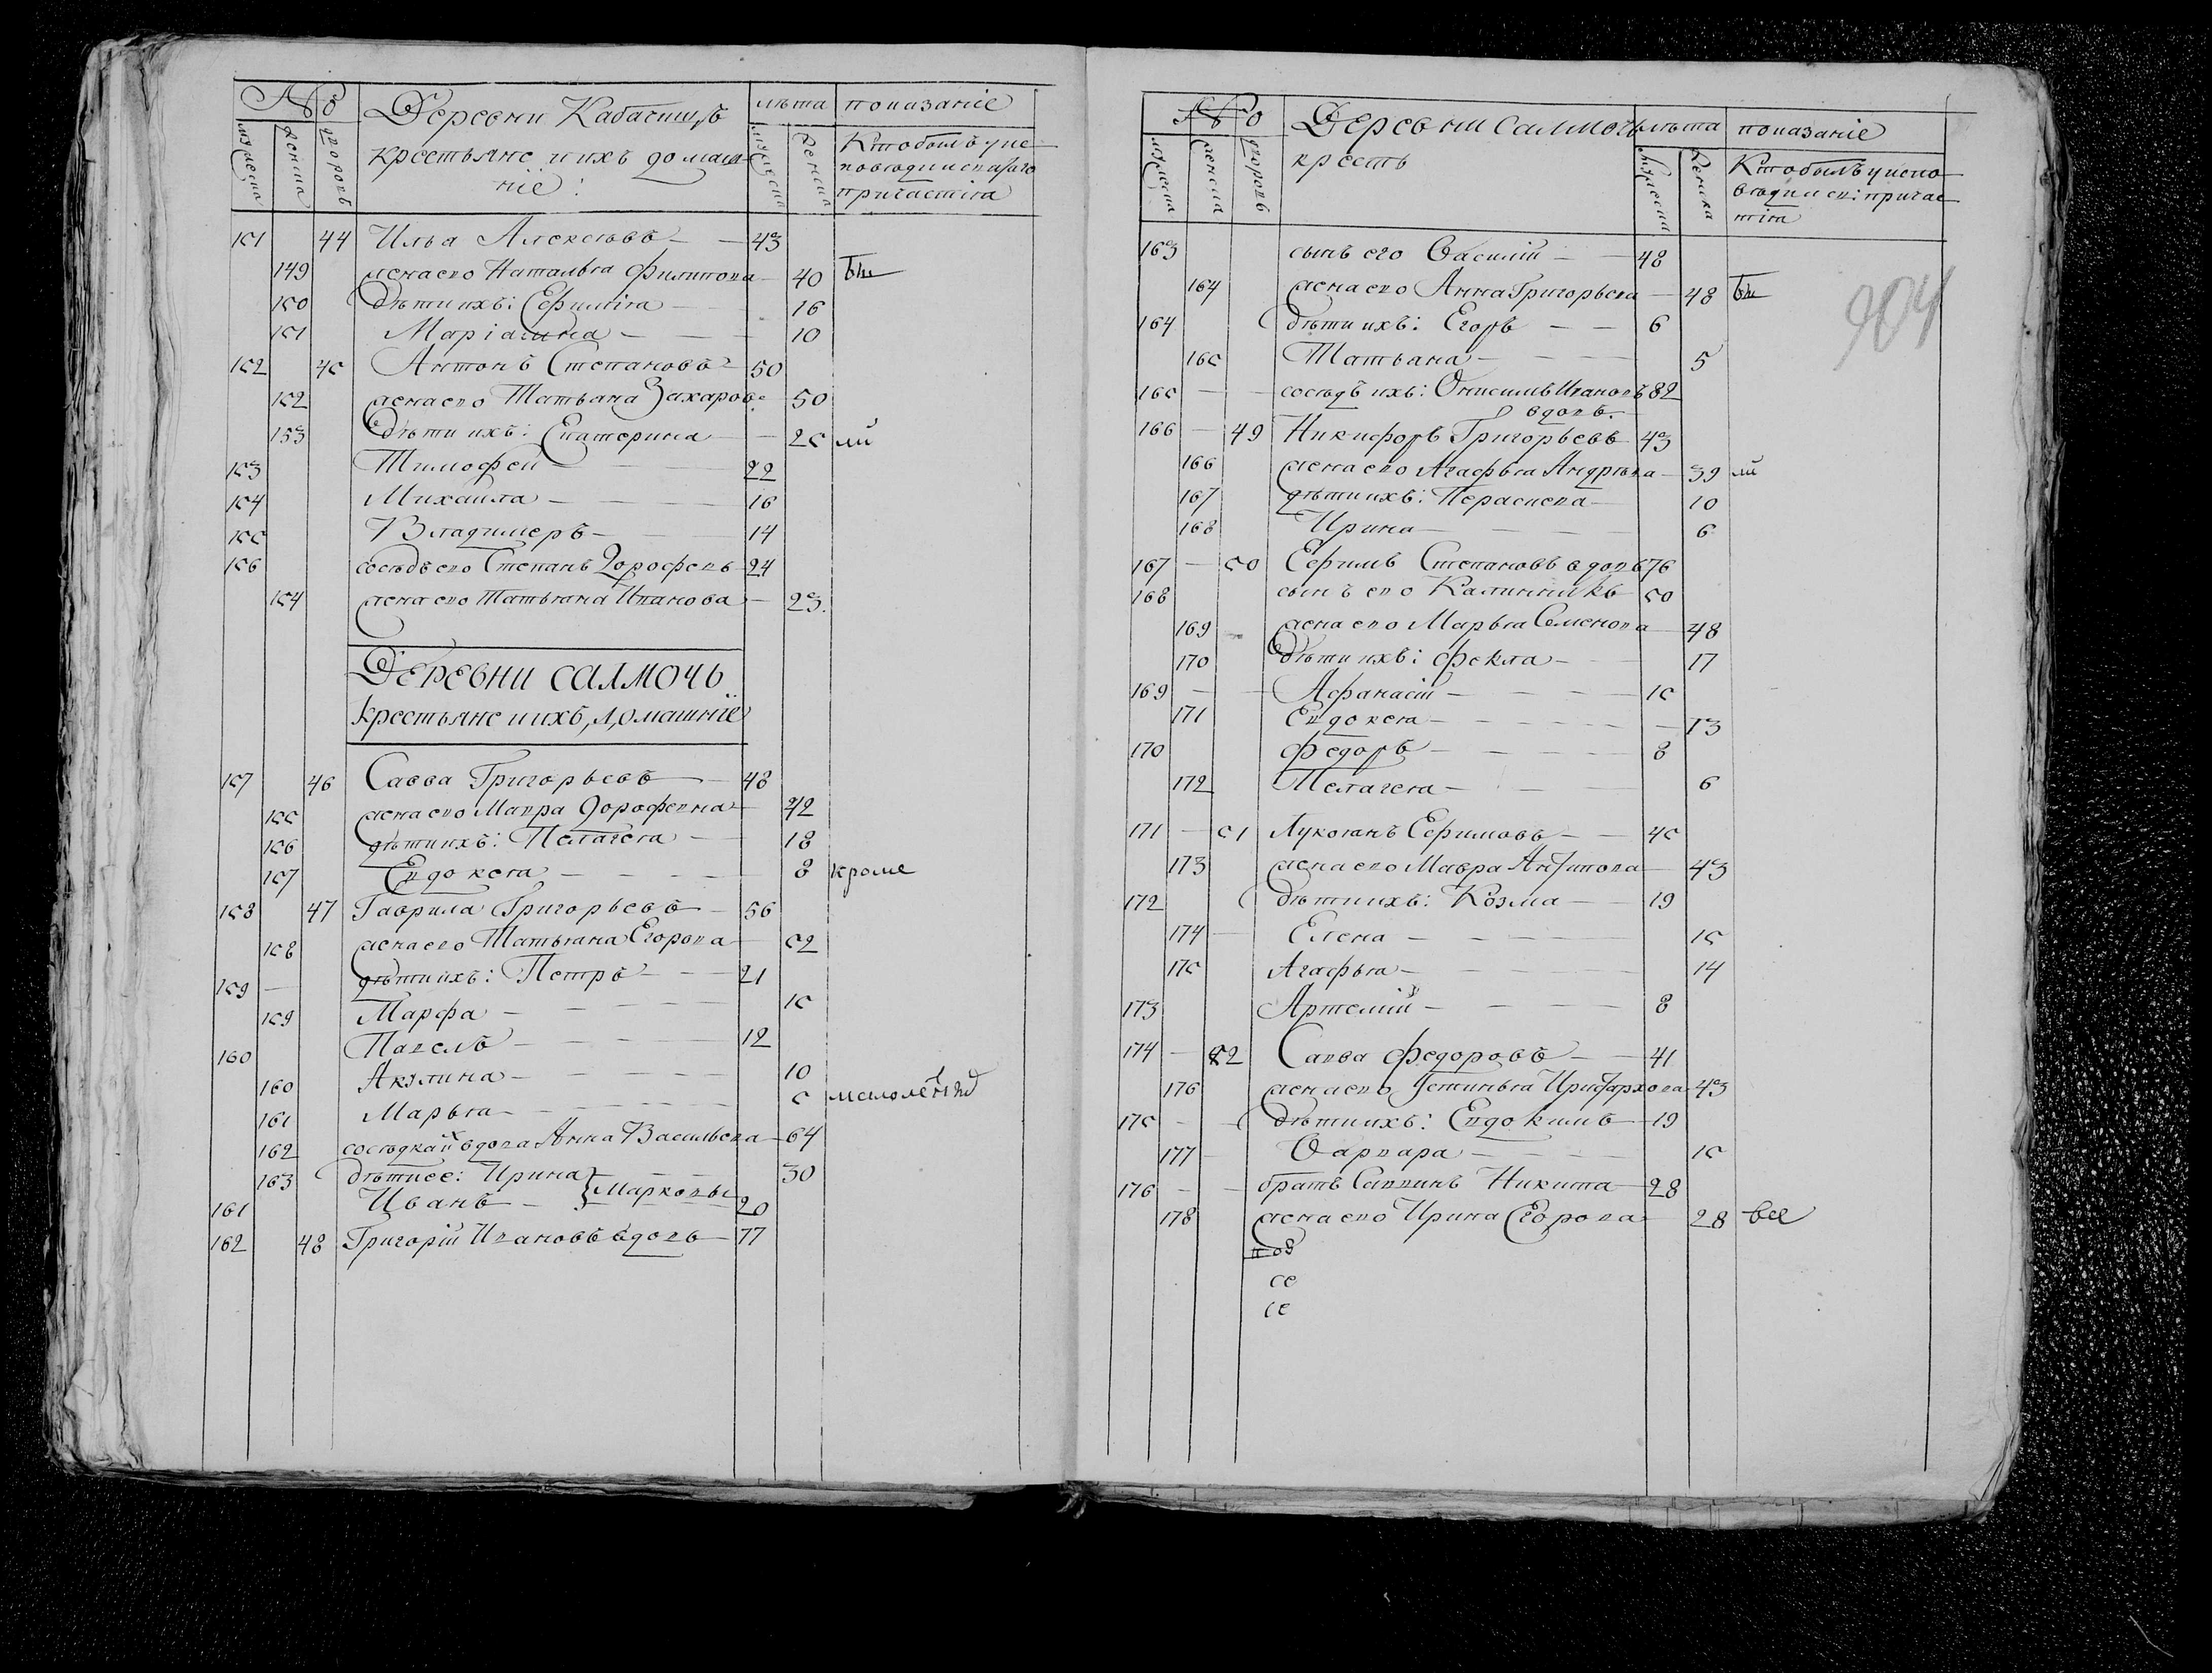 № Деревни Кабатищъ лѣта показаніе
мужеска женска дворовъ крестьяне и ихъ домаш- мужеска женска Кто былъ у испо-
ніе: ведии святаго
причастія
151 44 Илья Алексѣевъ 43
149 жена ево Наталья Филипова 40 бы
150 Дѣти ихъ: Ефимія 16
151 Маріанна 10
152 45 Антонъ Степановъ 50
152 жена ево Татьяна Захарова 50
153 Дѣти ихъ: Екатерина 25 ли
153 Тимофей 22
154 Михайла 16
155 Владимеръ 14
156 сосѣдъ ево Степанъ Дорофѣевъ 24
154 жена ево Татьяна Иванова 23.
ДЕРЕВНИ САЛМОЧЬ
крестьяне и ихъ домашніе
157 46 Савва Григорьевъ 48
155 жена ево Мавра Дорофевна 42
156 дѣти ихъ: Пелагея 18
157 Евдокея 8 кроме
158 47 Гаврила Григорьевъ 56
158 жена ево Татьяна Егорова 52
159 дѣти ихъ: Петръ 21
159 Марфа 15
160 Павелъ 12
160 Акулина 10
161 Марья 5 малолѣтнд
162 сосѣдка их вдова Анна Васильева 64
163 дѣти ее: Ирина 30
161 Иванъ } Марковы 20
162 48 Григорій Ивановъ вдовъ 77
№ Деревни Салмочь лѣта показаніе
мужеска женска дворовъ кресть мужеска женска Кто былъ у испо-
ведии св: причас-
тія
904
163 сынъ его Василій 48
164 жена ево Анна Григорьева 48 бы
164 Дѣти ихъ: Егоръ 6
165 Татьяна 5
165 сосѣдъ ихъ: Онисимъ Ивановъ 82
вдовъ.
166 49 Никифоръ Григорьевъ 43
166 жена ево Агафья Андрѣева 39 ли
167 дѣти ихъ: Параскева 10
168 Ирина 6
167 50 Ефимъ Степановъ вдовъ 76
168 сынъ ево Калинникъ 50
169 жена ево Марья Семенова 48
170 Дѣти ихъ: Фекла 17
169 Афанасій 15
171 Евдокея 13
170 Федоръ 8
172 Пелагея 6
171 51 Лукоянъ Ефимовъ 45
173 жена ево Мавра Антипова 43
172 Дѣти ихъ: Козма 19
174 Елена 15
175 Агафья 14
173 Артемій 8
174 52 Савва Федоровъ 41
176 жена ево Устинья Иристархова 43
175 Дѣти ихъ: Евдокимъ 19
177 Варвара 15
176 братъ Саввинъ Никита 28
178 жена ево Ирина Егорова 28 все
под
се
се